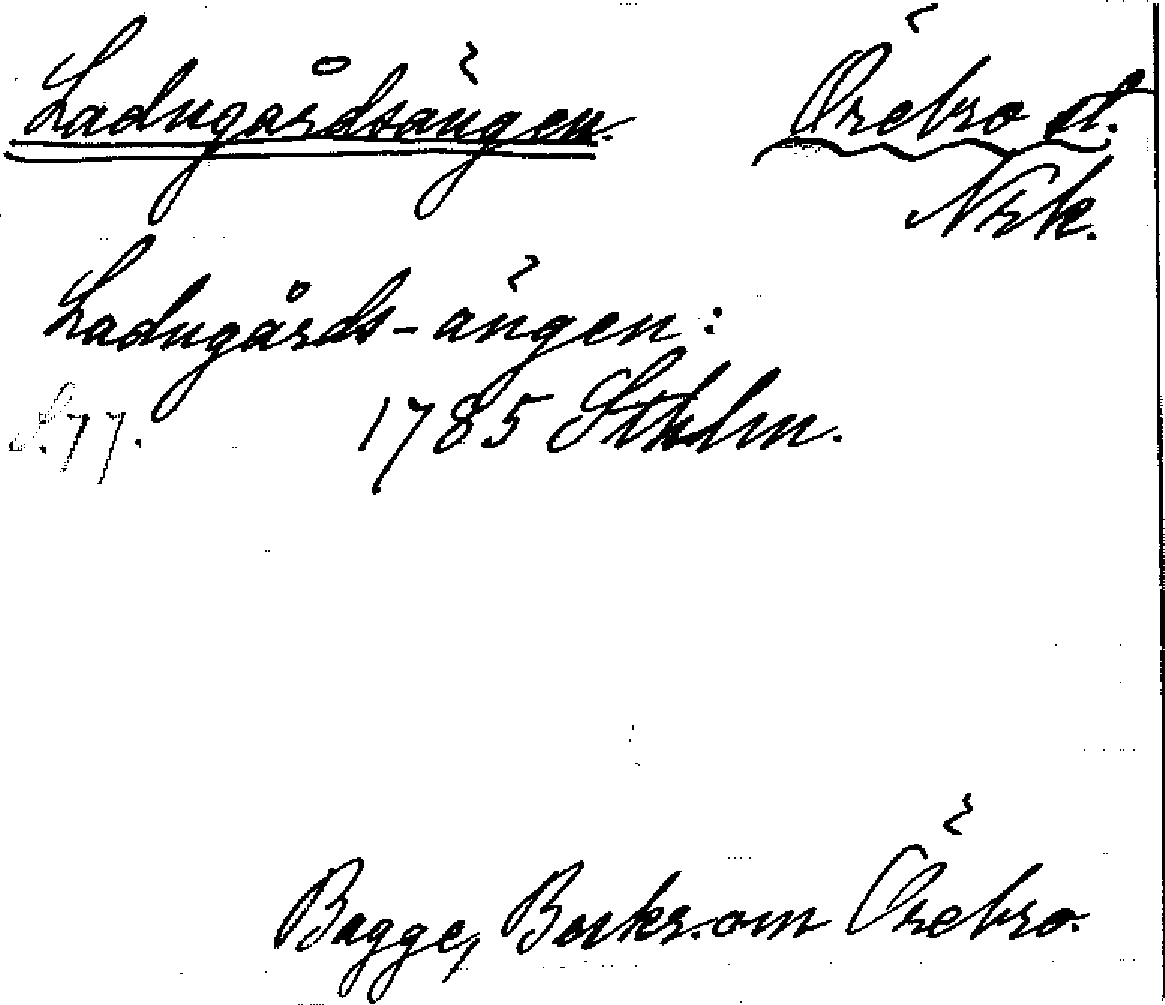 Ladugårdsängen. Örebro st.
Nrk.
Ladugårds-ängen:
S. 77. 1785 Sthlm.
Bagge, Beskr. om Örebro.